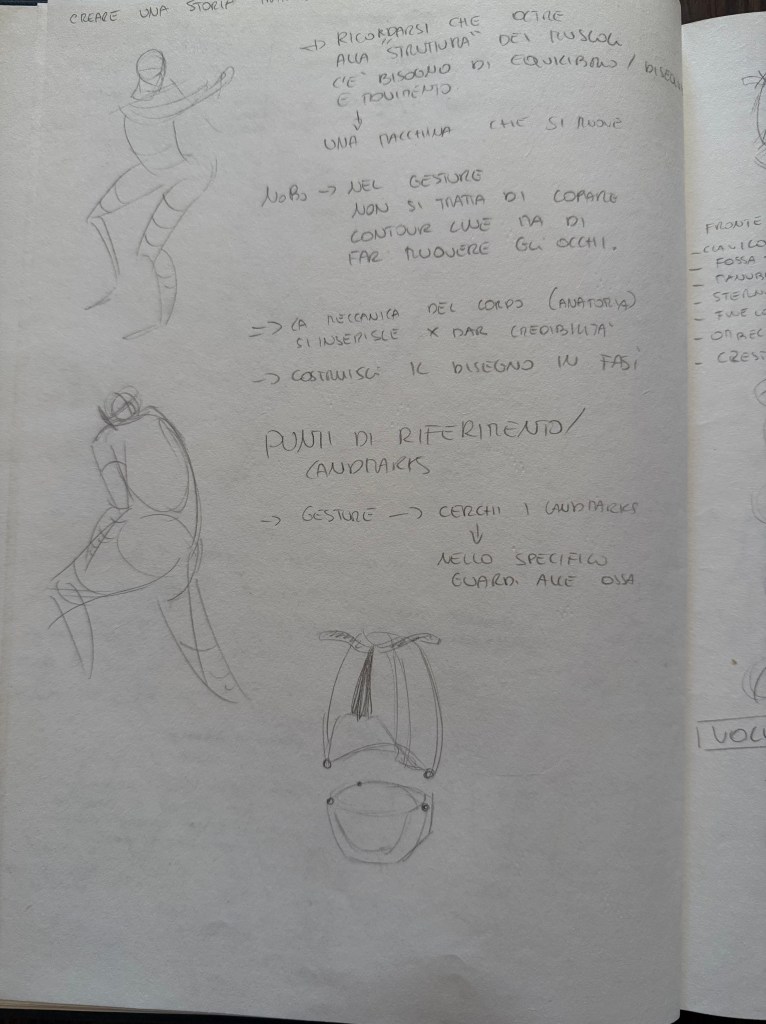 CREARE UNA STORIA
→ RICORDARSI CHE OLTRE
ALLA "STRUTTURA" DEI MUSCOLI
C'E' BISOGNO DI EQUILIBRIO /
E MOVIMENTO
↓
UNA MACCHINA CHE SI MUOVE
→ NEL GESTURE
NON SI TRATTA DI COPIARE
CONTOUR LINE MA DI
FAR MUOVERE GLI OCCHI.
=> LA MECCANICA DEL CORPO (ANATOMIA)
SI INSERISCE X DAR CREDIBILITA'
→ COSTRUISCI IL DISEGNO IN FASI
PUNTI DI RIFERIMENTO/
LANDMARKS
→ GESTURE → CERCHI I LANDMARKS
↓
NELLO SPECIFICO
GUARDI ALLE OSSA
FRONTE
- FOSSA
- CREST
I VOLU